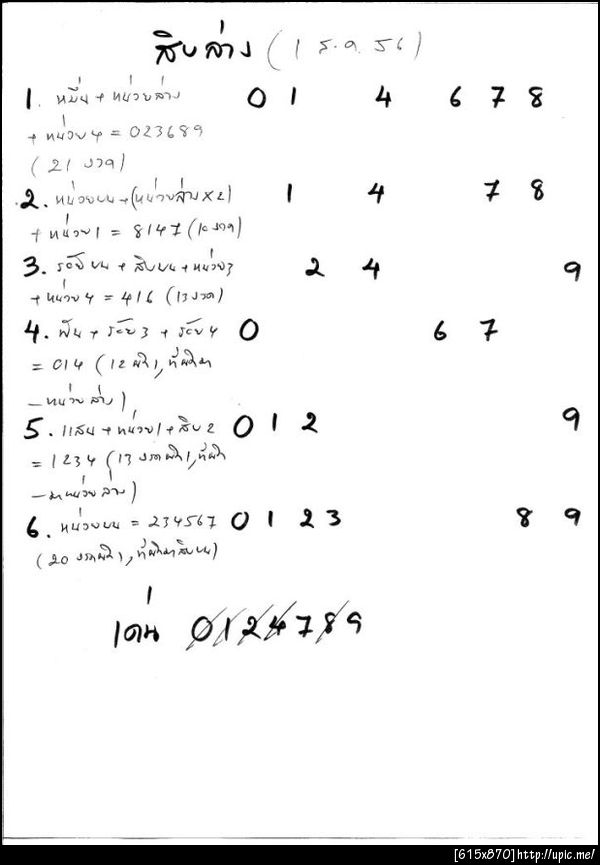 สิบล่าง (1 ธ.ค. 56)
1. หมื่น + หน่วยล่าง 0 1 4 6 7 8
+ หน่วย 4 = 023689
(21 งวด)
2. หน่วยบน + (หน่วยล่าง x 2) 1 4 7 8
+ หน่วย 1 = 8147 (10 งวด)
3. ร้อยบน + สิบบน + หน่วย 3 2 4 9
+ หน่วย 4 = 416 (13 งวด)
4. พัน + ร้อย 3 + ร้อย 4 0 6 7
= 014 (12 ผิด 1, ที่ผิดมา
– หน่วยล่าง)
5. แสน + หน่วย 1 + สิบ 2 0 1 2 9
= 1234 (13 งวดผิด 1, ที่ผิด
– มาหน่วยล่าง)
6. หน่วยบน = 234567 0 1 2 3 8 9
(20 งวดผิด 1, ที่ผิดมาสิบบน)
เด่น 0124789
[615x870]http://upic.me/